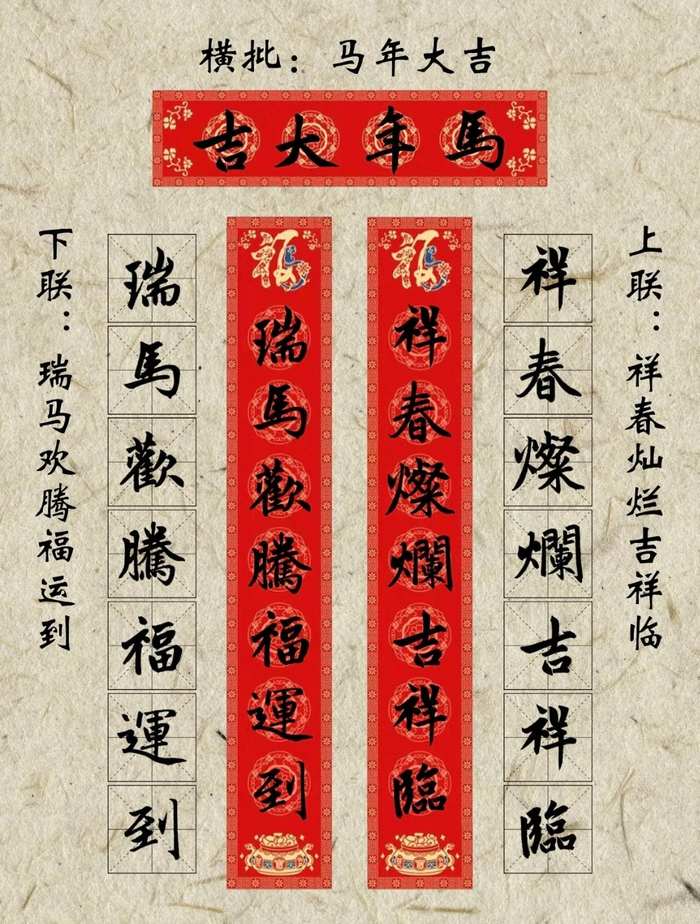 横批：马年大吉
吉大年馬
上联：祥春灿烂吉祥临
祥春燦爛吉祥臨
福祥春燦爛吉祥臨
福瑞馬歡騰福運到
瑞馬歡騰福運到
下联：瑞马欢腾福运到